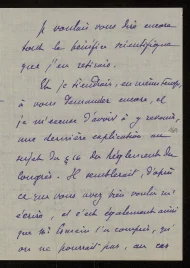 Je voulais vous dire encore
tout le bénéfice scientifique
que j'en retirais.
Et je tiendrais, en même temps,
à vous demander encore, et
je m'excuse d'avoir à y revenir,
une dernière explication au
sujet du § 16 des Règlements du
Congrès. Il semblerait, d'après
ce que vous avez bien voulu m'
écrire, et c'est également ainsi
que l'a compris, qu'
on ne pourrait pas, au cas